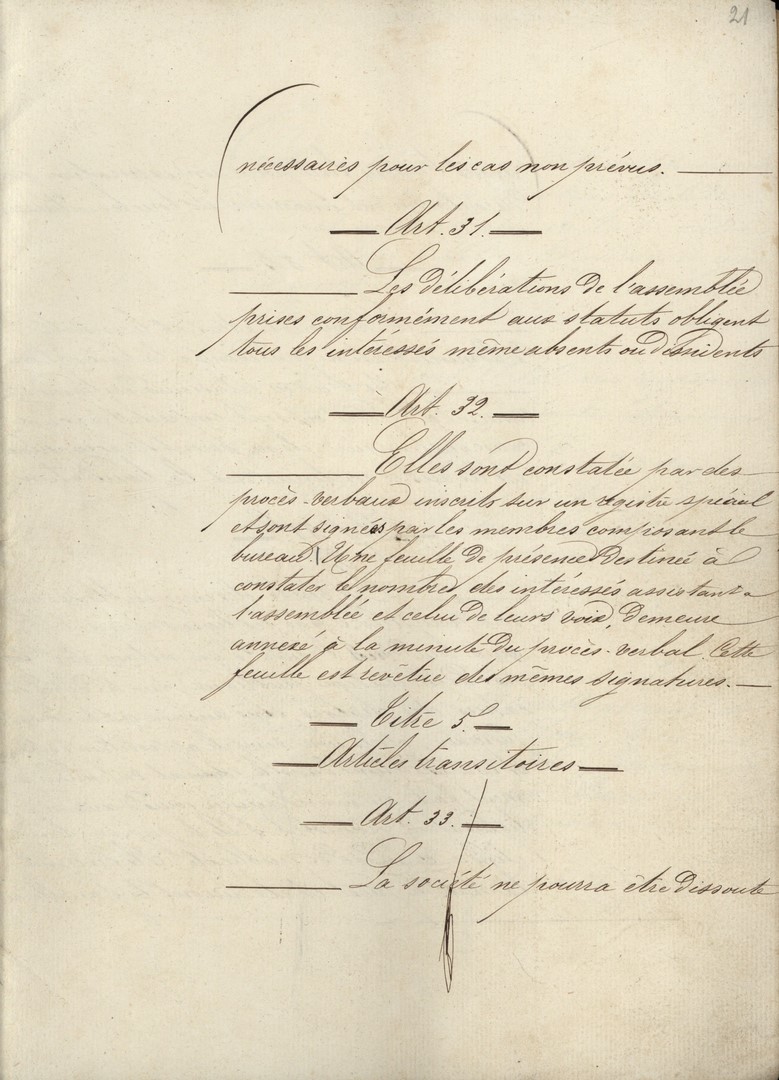 21
nécessaires pour les cas non prévus.
Art. 31.
Les délibérations de l'assemblée
prises conformément aux statuts obligent
tous les intéressés même absents ou dissidents
Art. 32.
Elles sont constatée par des
procès-verbaux inscrits sur un registre spécial
et sont signés par les membres composant le
bureau. Une feuille de présence destinée à
constater le nombre des intéressés assistant a
l'assemblée et celui de leurs voix, demeure
annexé à la minute du procès-verbal. Cette
feuille est revêtue des mêmes signatures.
Titre 5.
Articles transitoires
Art. 33.
La société ne pourra être dissoute